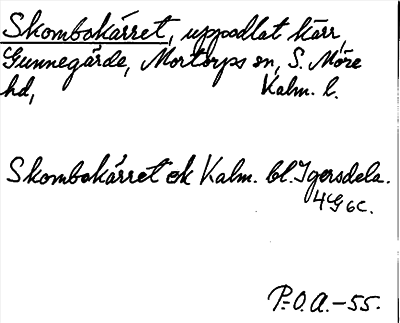 Skombokärret, uppodlat kärr,
Gunnegärde, Mortorps sn, S. Möre
hd, Kalm. l.
Skombokärret ek Kalm. bl. Igersdela.
4G 6c.
P.-O.A.-55.